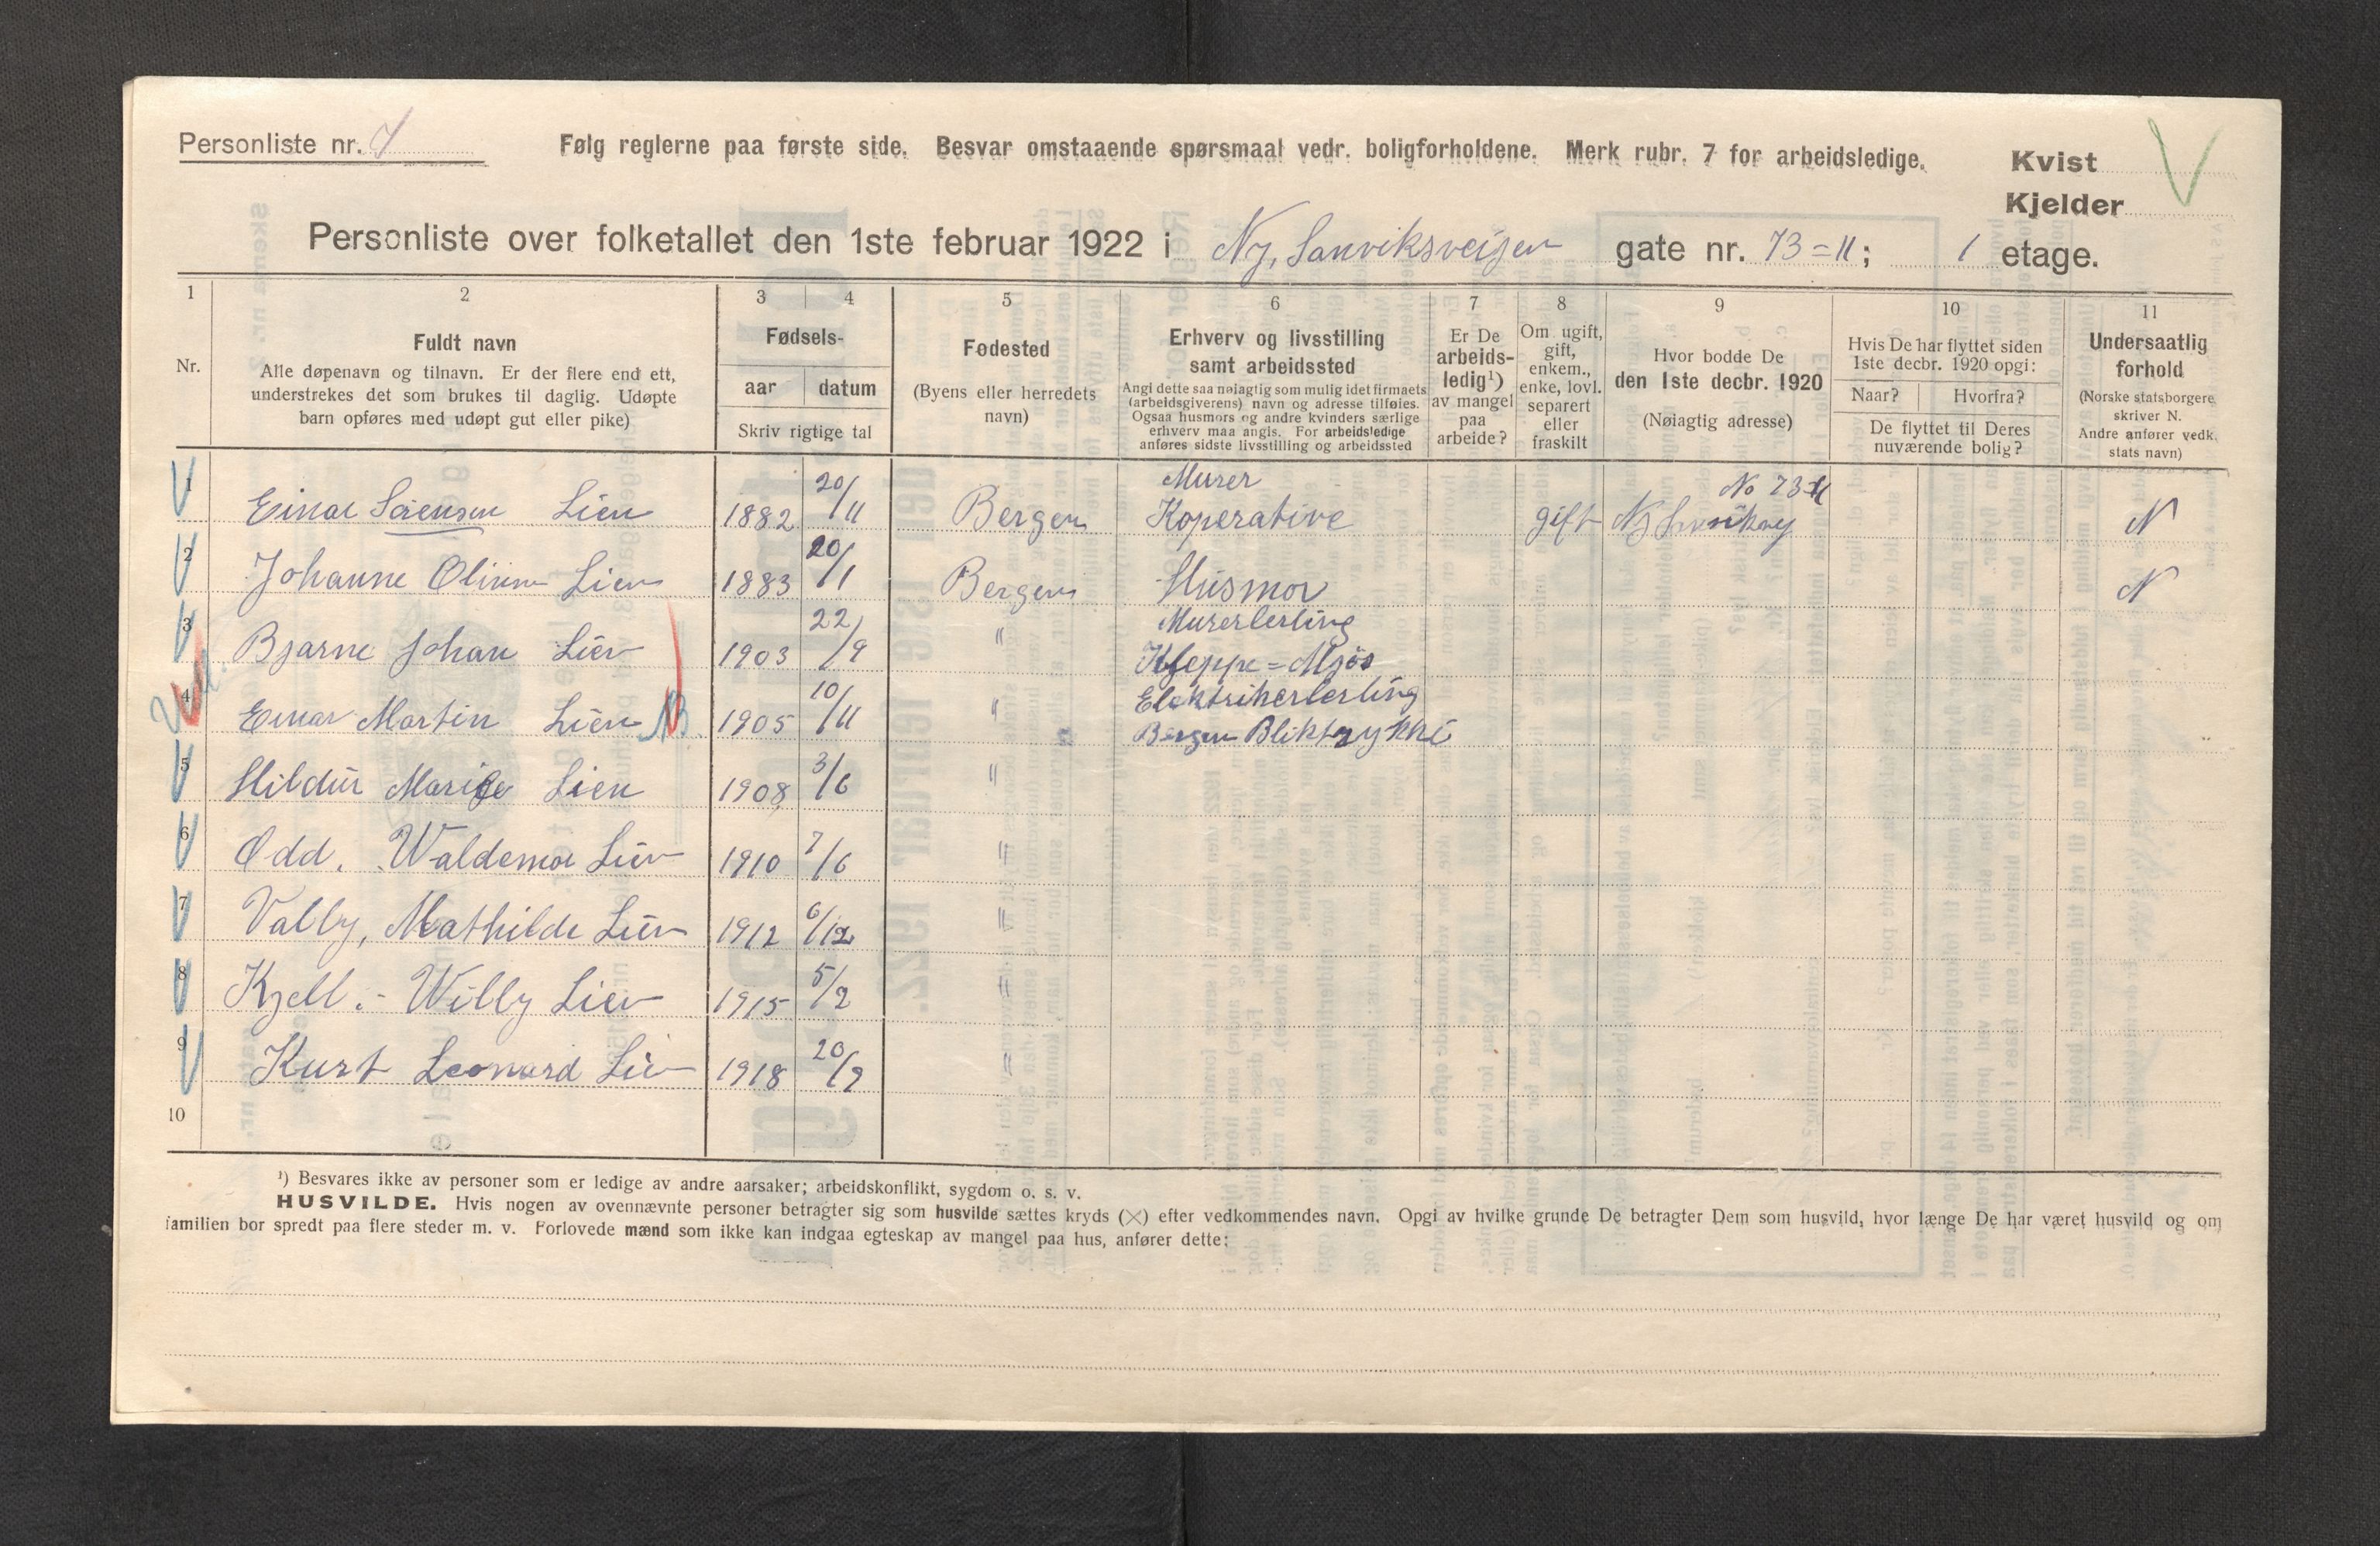 Personliste nr. 7
Følg reglerne paa første side. Besvar omstaaende spørsmaal vedr. boligforholdene. Merk rubr. 7 for arbeidsledige.
Kvist
Kjelder
Personliste over folketallet den 1ste februar 1922 i Ny. Sanviksveien gate nr. 73=11; 1 etage.
1 2 3 4 5 6 7 8 9 10 11
Nr.
Fuldt navn
Alle døpenavn og tilnavn. Er der flere end ett,
understrekes det som brukes til daglig. Udøpte
barn opføres med udøpt gut eller pike)
Fødsels-
aar datum
Skriv rigtige tal
Fødested
(Byens eller herredets
navn)
Erhverv og livsstilling
samt arbeidssted
Angi dette saa nøiagtig som mulig idet firmaets
(arbeidsgiverens) navn og adresse tilføies.
Ogsaa husmors og andre kvinders særlige
erhverv maa angis. For arbeidsledige
anføres sidste livsstilling og arbeidssted
Er De
arbeids-
ledig¹)
av mangel
paa
arbeide?
Om ugift,
gift,
enkem.,
enke, lovl.
separert
eller
fraskilt
Hvor bodde De
den 1ste decbr. 1920
(Nøiagtig adresse)
Hvis De har flyttet siden
1ste decbr. 1920 opgi:
Naar? Hvorfra?
De flyttet til Deres
nuværende bolig?
Undersaatlig
forhold
(Norske statsborgere
skriver N.
Andre anfører vedk.
stats navn)
Murer No 73-11
1 Einar Sørensen Lien 1882 20/11 Bergen Koperative gift Ny N
2 Johanne Olivine Lien 1883 20/1 Bergen Husmor N
Murerlerling
3 Bjarne Johan Lien 1903 22/9 " Kleppe = Mjös
Elektrikerlerling
4 Einar Martin Lien 1905 10/11 " Bergen Bliktrykkeri
5 Hildur Marie Lien 1908 3/6 "
6 Odd. Waldemar Lien 1910 7/6 "
7 Vally, Mathilde Lien 1912 6/12 "
8 Kjell.- Willy Lien 1915 5/2 "
9 Kurt Leonard Lien 1918 20/9 "
10
¹) Besvares ikke av personer som er ledige av andre aarsaker; arbeidskonflikt, sygdom o. s. v.
HUSVILDE. Hvis nogen av ovennævnte personer betragter sig som husvilde sættes kryds (×) efter vedkommendes navn. Opgi av hvilke grunde De betragter Dem som husvild, hvor længe De har været husvild og om
familien bor spredt paa flere steder m. v. Forlovede mænd som ikke kan indgaa egteskap av mangel paa hus, anfører dette: